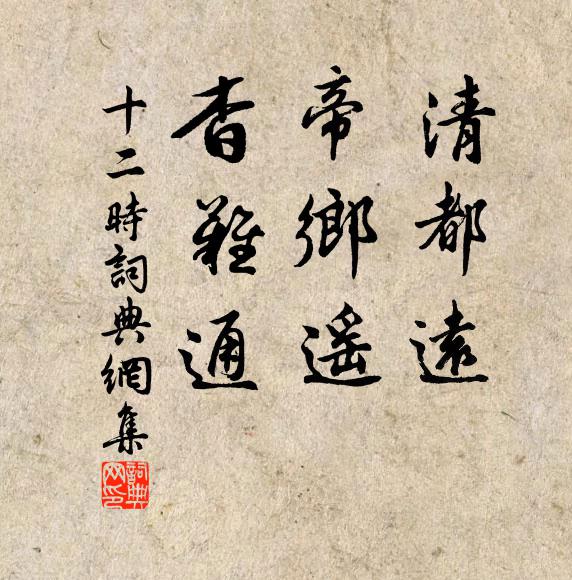 清都遠
帝鄉遥
杳難通
十二時詞典網集
詞典网印